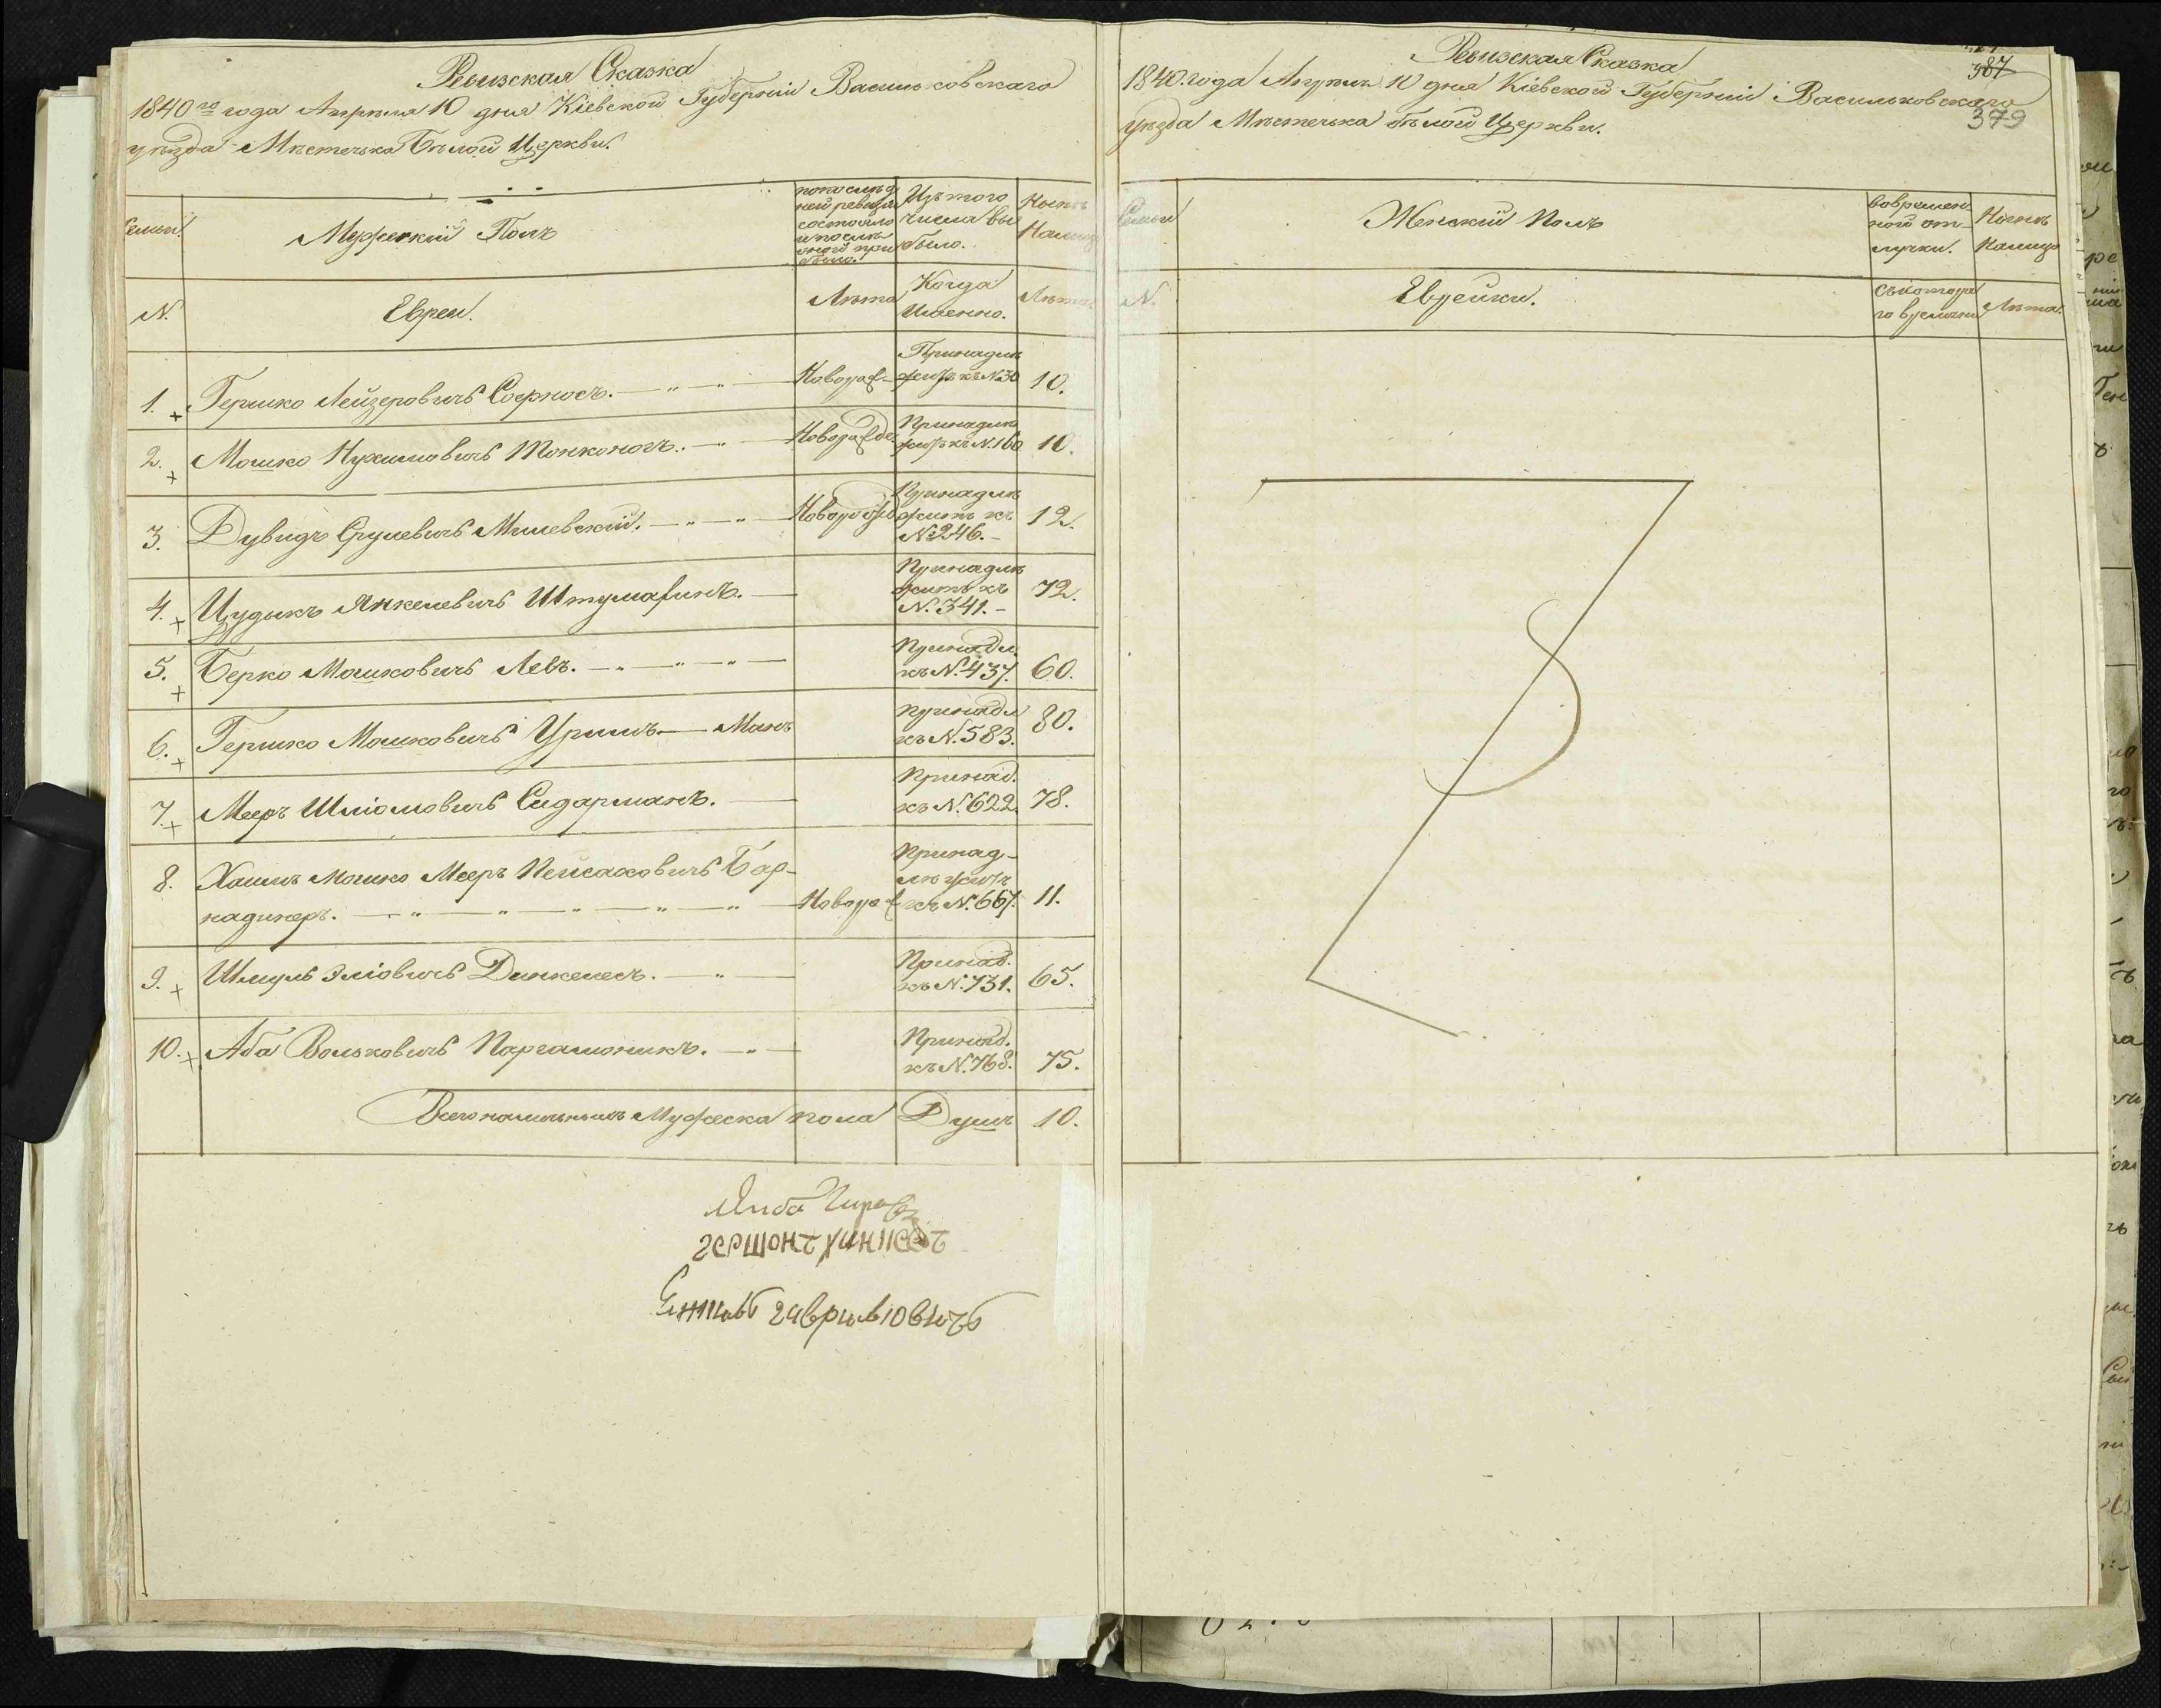 Ревизская Сказка
1840го года Апреля 10 дня Кіевской Губерніи Васильковскаго
уѣзда Мѣстечка Бѣлой Церкви.
Семьи
Мужескій Полъ
По послѣд
ней ревизіи
состояло
и послѣ
оной при
было.
Изъ того
числа вы
было.
Нынѣ
Налицо
N.
Евреи.
Лѣта
Когда
Именно.
Лѣта
1. Гершко Лейзеровичъ Соф
Принадле
житъ къ №30
10.
2. Мошко Нухимовичъ Тонконогъ.
Принадле
житъ къ №.160
10.
3. Дувидъ Срулевичъ Милевскій.
Принадле
житъ къ
№246.
12.
4. Цудыкъ Янкелевичъ
Принадле
житъ къ
N.341.-
72.
5. Берко Мошковичъ Левъ.
Принадл.
къ N.437.
60.
6. Гершко Мошковичъ
Принадл
къ N.583.
80.
7. Мееръ Шліомовичъ Сидарманъ.
Принад.
къ N.622.
78.
8. Хаимъ Мошко Мееръ Пейсаховичъ Бар-
надинеръ.
Принад-
лежитъ
къ N.667.
11.
9. Шмуль Эліовичъ Динкелесъ.
Принад.
къ N.731.
65.
10. Аба Вольковичъ Паргамоникъ.
Принад.
къ N.768.
75.
Всего наличныхъ Мужеска пола Душъ 10.
Ревизская Сказка
387
1840. года Апреля 10 дня Кіевской Губерніи Васильковскаго
379
уѣзда Мѣстечка Бѣлой Церкви.
Семьи
Женскій Полъ
Во времен
ной от-
лучки.
Нынѣ
Налицо
N.
Еврейки.
Съ котора
го времени
Лѣта.